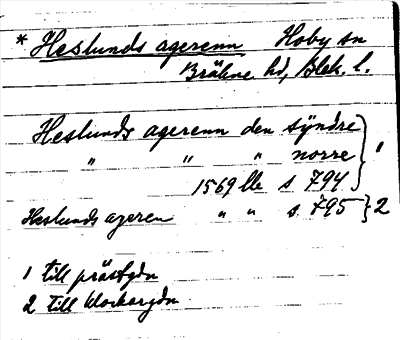 * Heslunds agerenn Hoby sn
Bräkne hd, Blek. l.
Heslunds agerenn den syndre
" " " norre } 1
1569 lle s 794
Heslunds ageren " " s. 795 } 2
1 till prästgdn
2 till klockargdn